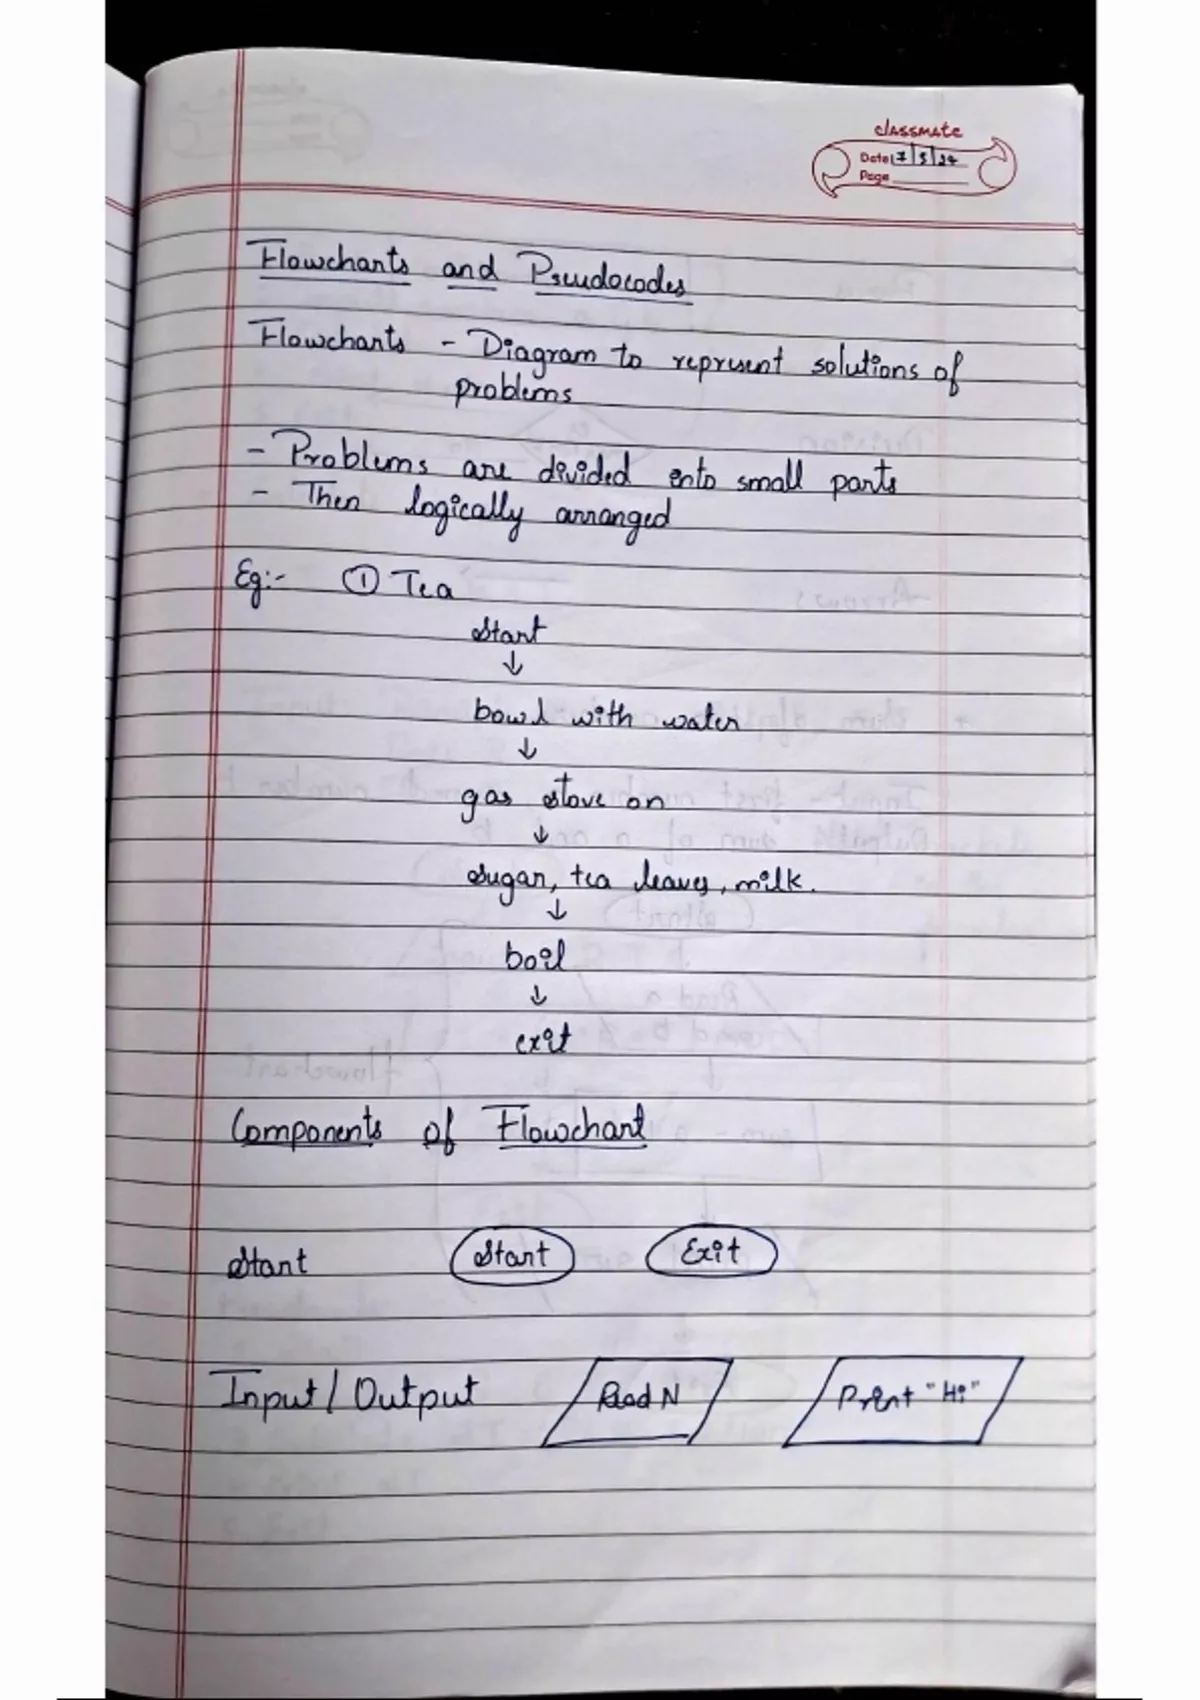 classmate
Date 7/5/24
Page
Flowcharts and Pseudocodes
Flowcharts - Diagram to represent solutions of
problems
- Problems are divided into small parts
- Then logically arranged
Eg:- ① Tea
Start
↓
bowl with water
↓
gas stove on
↓
sugar, tea leaves, milk.
↓
boil
↓
exit
Components of Flowchart
Start Start Exit
Input / Output Read N Print "Hi"